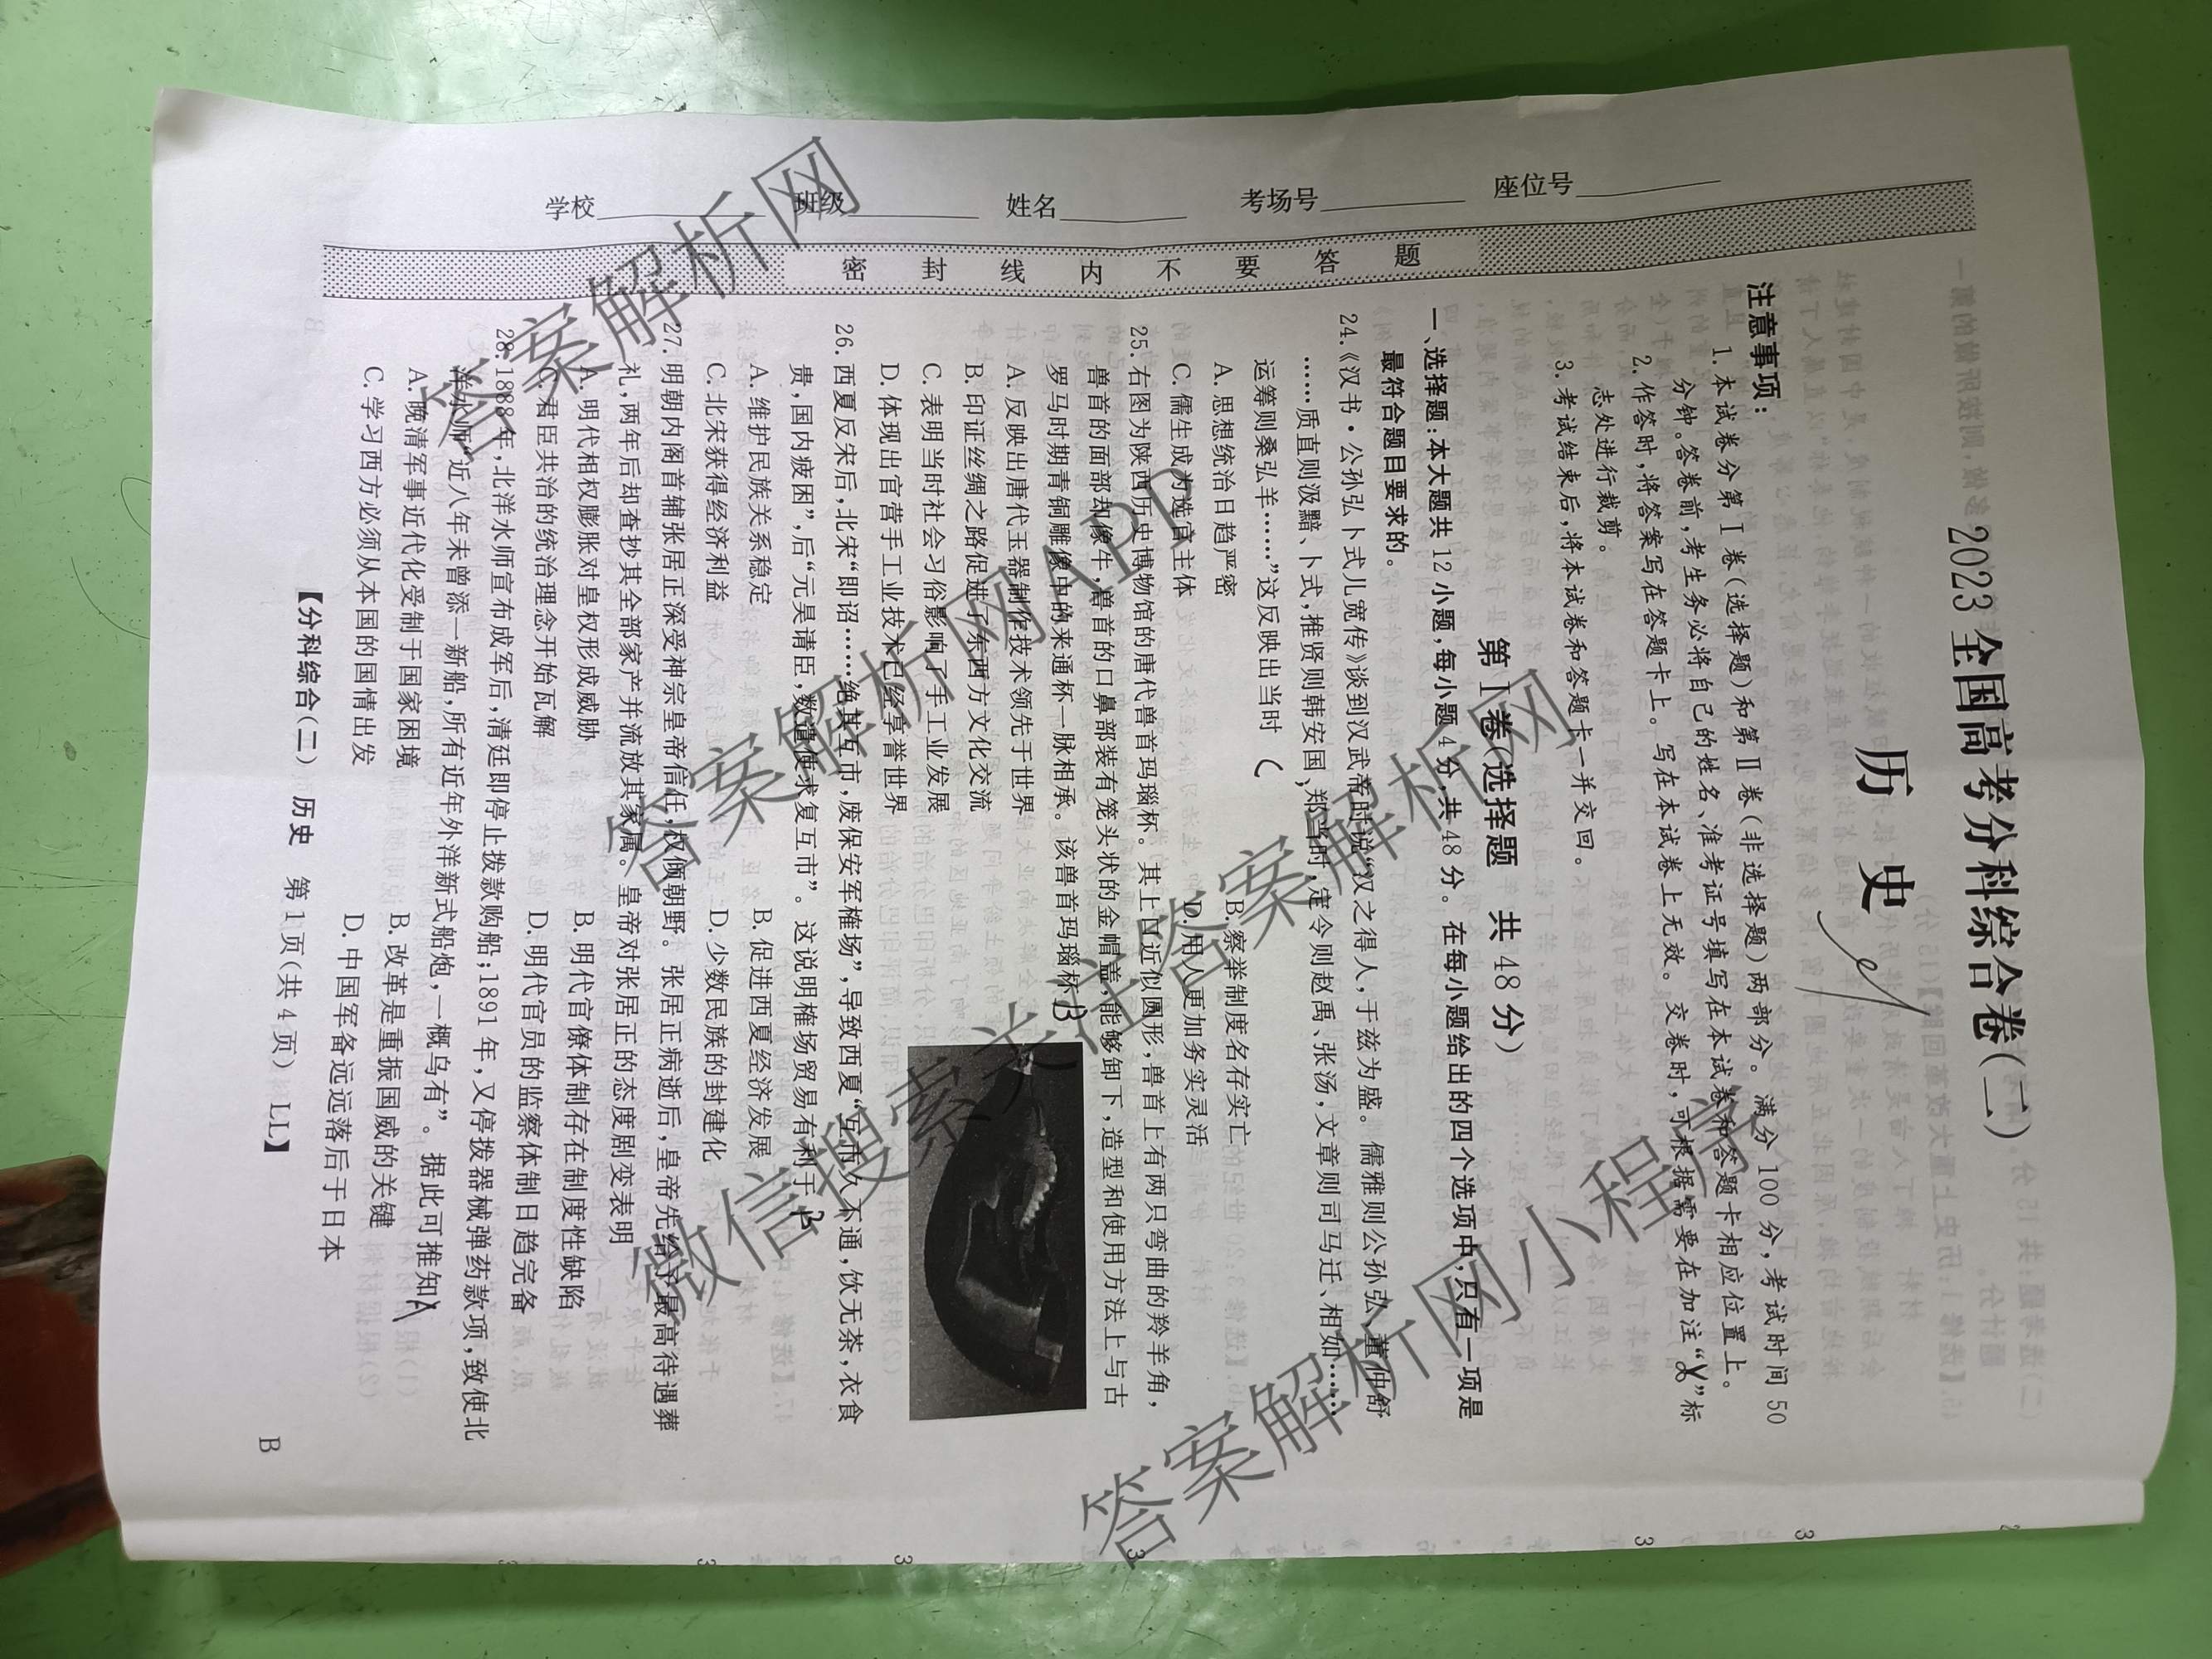 2023全国高考分科综合卷(二)
历 史
注意事项:
1.本试卷分第Ⅰ卷(选择题)和第Ⅱ卷(非选择题)两部分。满分100分,考试时间50
分钟。答卷前,考生务必将自己的姓名、准考证号填写在本试卷和答题卡相应位置上。
2.作答时,将答案写在答题卡上。写在本试卷上无效。交卷时,可根据需要在加注“✂”标
志处进行裁剪。
3.考试结束后,将本试卷和答题卡一并交回。
第Ⅰ卷(选择题 共48分)
一、选择题:本大题共12小题,每小题4分,共48分。在每小题给出的四个选项中,只有一项是
最符合题目要求的。
24.《汉书·公孙弘卜式儿宽传》谈到汉武帝时说“汉之得人,于兹为盛。儒雅则公孙弘、董仲舒
……质直则汲黯、卜式,推贤则韩安国、郑当时,定令则赵禹、张汤,文章则司马迁、相如……
运筹则桑弘羊……”这反映出当时
A.思想统治日趋严密
B.察举制度名存实亡
C.儒生成为选官主体
D.用人更加务实灵活
25.右图为陕西历史博物馆的唐代兽首玛瑙杯。其上口近似圆形,兽首上有两只弯曲的羚羊角,
兽首的面部却像牛,兽首的口鼻部装有笼头状的金帽盖,能够卸下,造型和使用方法上与古
罗马时期青铜雕像中的来通杯一脉相承。该兽首玛瑙杯 B
A.反映出唐代玉器制作技术领先于世界
B.印证丝绸之路促进了东西方文化交流
C.表明当时社会习俗影响了手工业发展
D.体现出官营手工业技术已经享誉世界
26.西夏反宋后,北宋“即诏……绝其互市,废保安军榷场”,导致西夏“互市久不通,饮无茶,衣食
贵,国内疲困”,后“元昊请臣,数遣使求复互市”。这说明榷场贸易有利于
A.维护民族关系稳定
B.促进西夏经济发展
C.北宋获得经济利益
D.少数民族的封建化
27.明朝内阁首辅张居正深受神宗皇帝信任,权倾朝野。张居正病逝后,皇帝先给予最高待遇葬
礼,两年后却查抄其全部家产并流放其家属。皇帝对张居正的态度剧变表明
A.明代相权膨胀对皇权形成威胁
B.明代官僚体制存在制度性缺陷
C.君臣共治的统治理念开始瓦解
D.明代官员的监察体制日趋完备
28.1888年,北洋水师宣布成军后,清廷即停止拨款购船;1891年,又停拨器械弹药款项,致使北
洋水师“近八年未曾添一新船,所有近年外洋新式船炮,一概乌有”。据此可推知 A
A.晚清军事近代化受制于国家困境
B.改革是重振国威的关键
C.学习西方必须从本国的国情出发
D.中国军备远远落后于日本
【分科综合(二) 历史 第1页(共4页) LL】
B
学校
班级
姓名
考场号
座位号
密 封 线 内 不 要 答 题
答案解析网
答案解析网APP
微信搜索关注答案解析网
答案解析网小程序